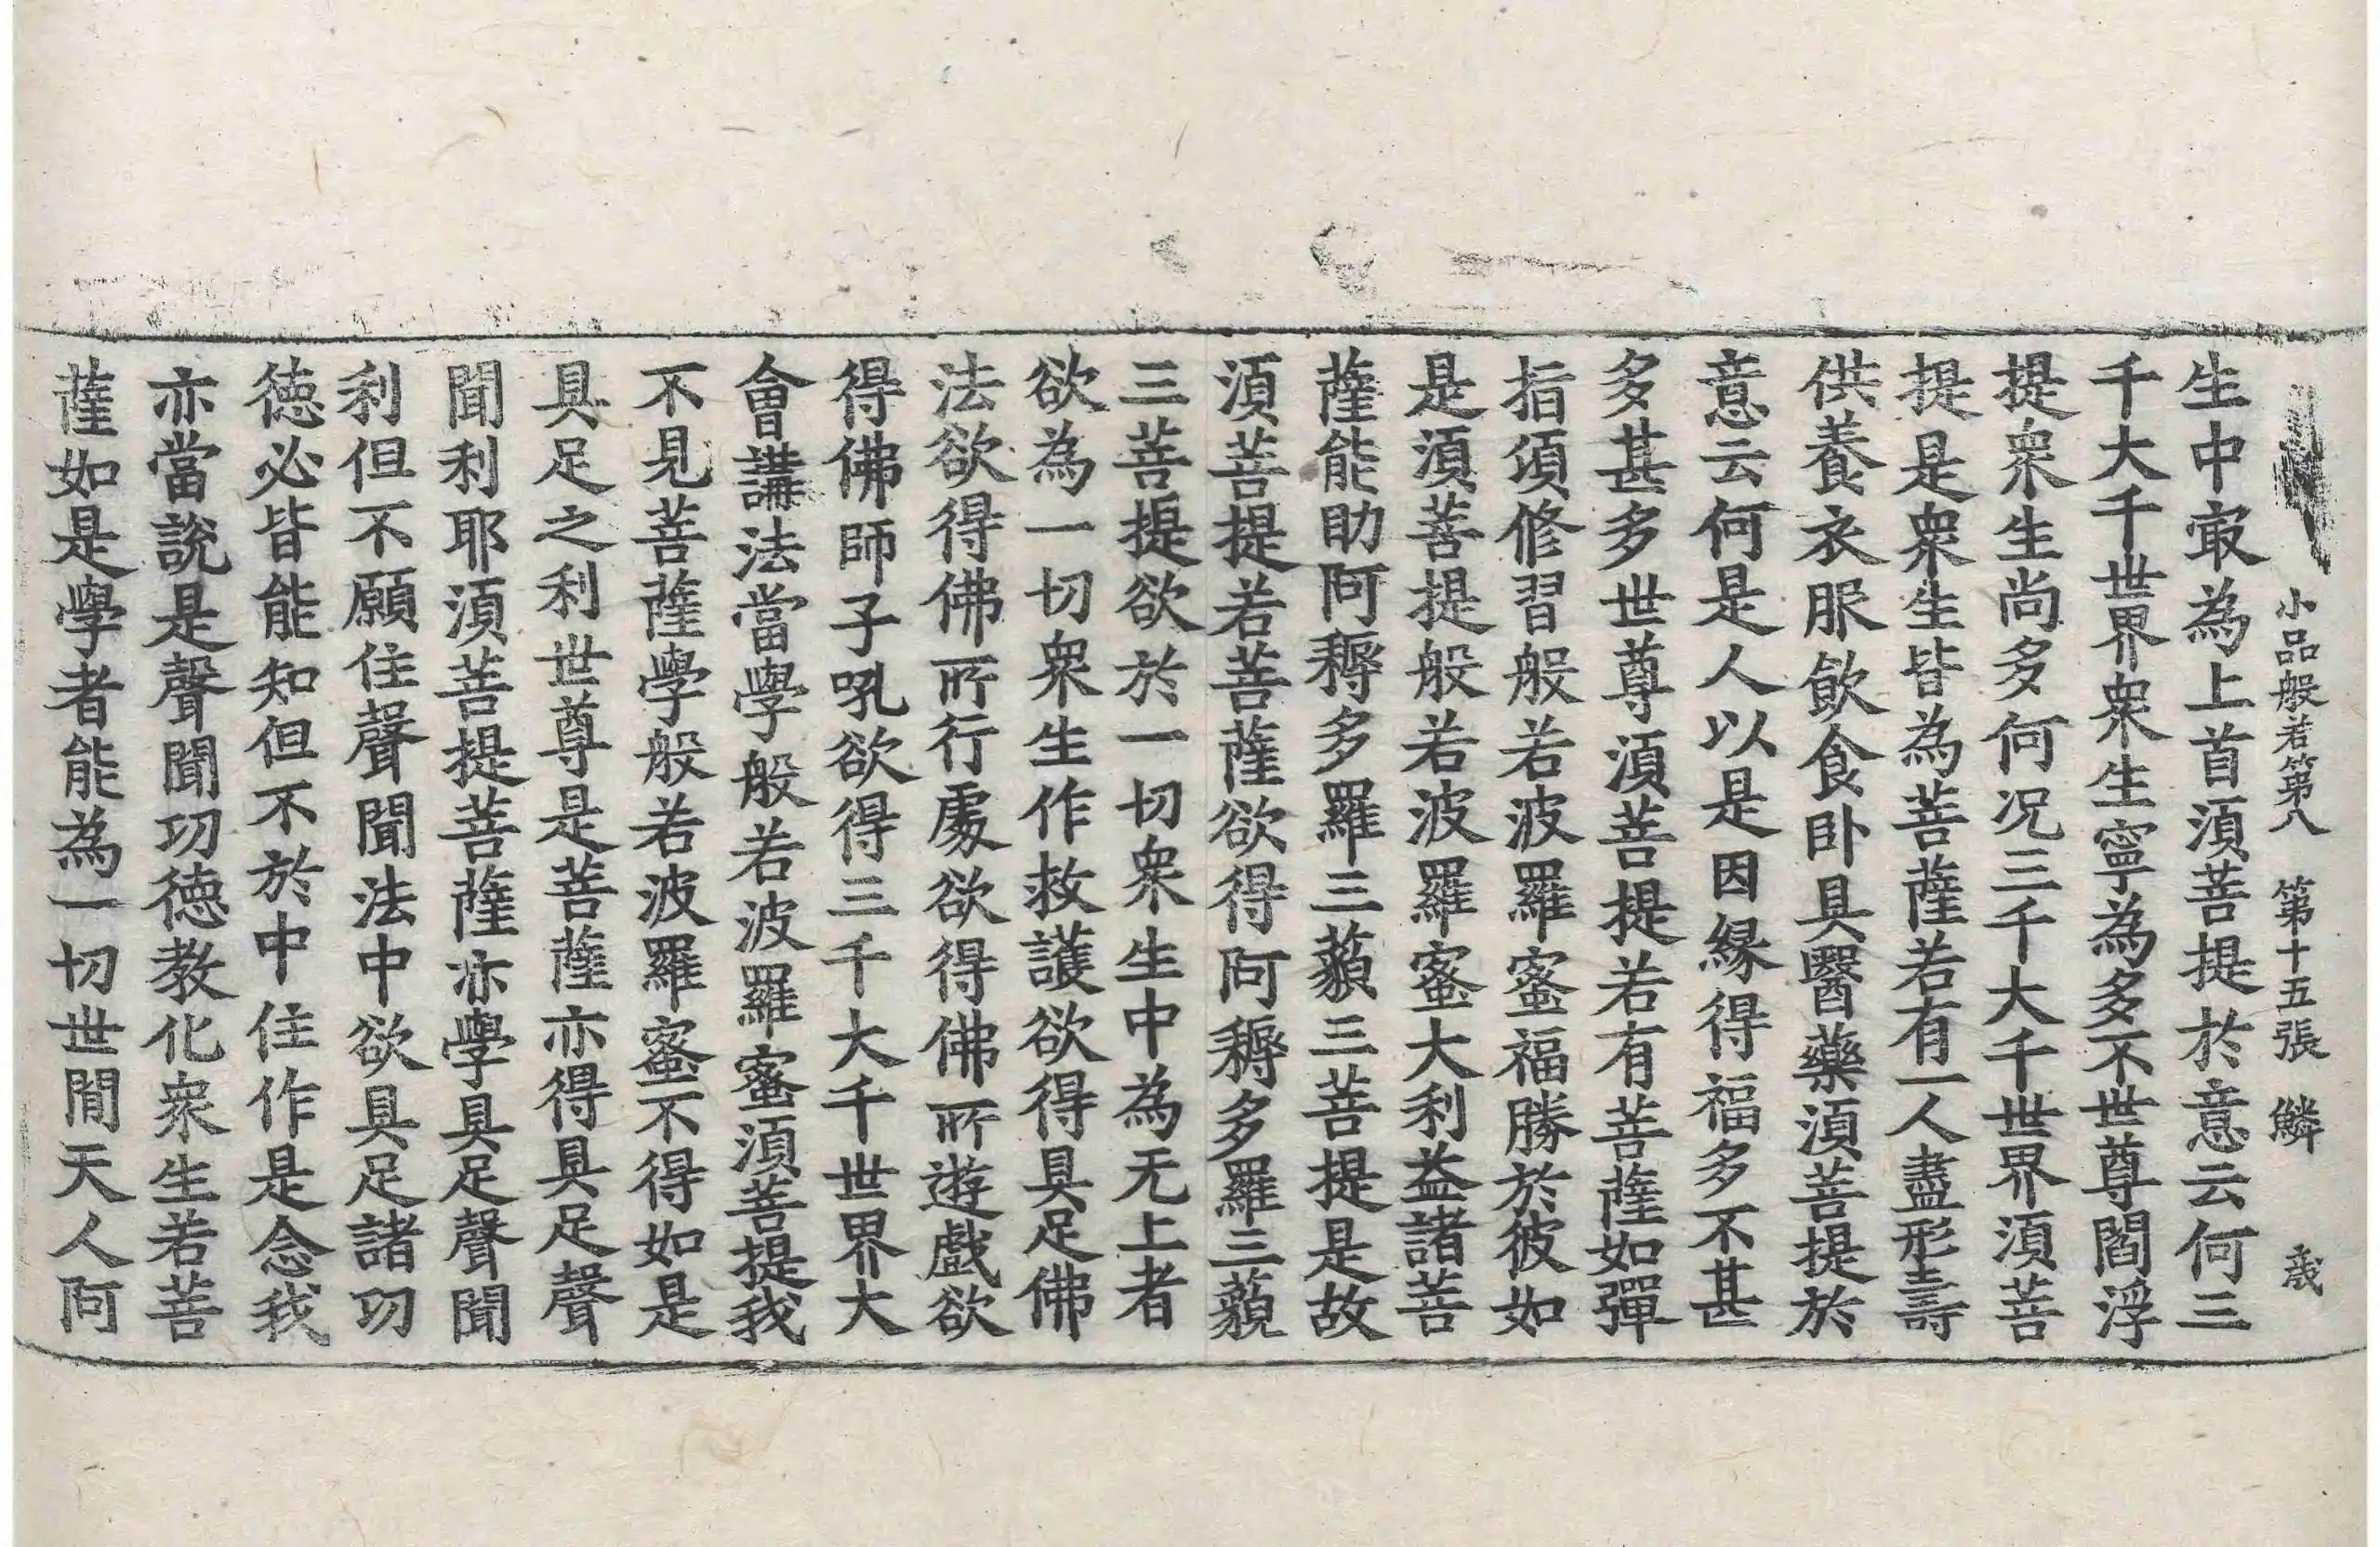 小品般若第八 第十五張 鱗 歲
生中㝡為上首須菩提於意云何三
千大千世界衆生寧為多不世尊閻浮
提衆生尚多何况三千大千世界須菩
提是衆生皆為菩薩若有一人盡形壽
供養衣服飲食卧具醫藥須菩提於
意云何是人以是因緣得福多不甚
多甚多世尊須菩提若有菩薩如彈
指頃修習般若波羅蜜福勝於彼如
是須菩提般若波羅蜜大利益諸菩
薩能助阿耨多羅三藐三菩提是故
須菩提若菩薩欲得阿耨多羅三藐
三菩提欲於一切衆生中為无上者
欲為一切衆生作救護欲得具足佛
法欲得佛所行處欲得佛所遊戲欲
得佛師子吼欲得三千大千世界大
會講法當學般若波羅蜜須菩提我
不見菩薩學般若波羅蜜不得如是
具足之利世尊是菩薩亦得具足聲
聞利耶須菩提菩薩亦學具足聲聞
利但不願住聲聞法中欲具足諸功
德必皆能知但不於中住作是念我
亦當說是聲聞功德教化衆生若菩
薩如是學者能為一切世間天人阿